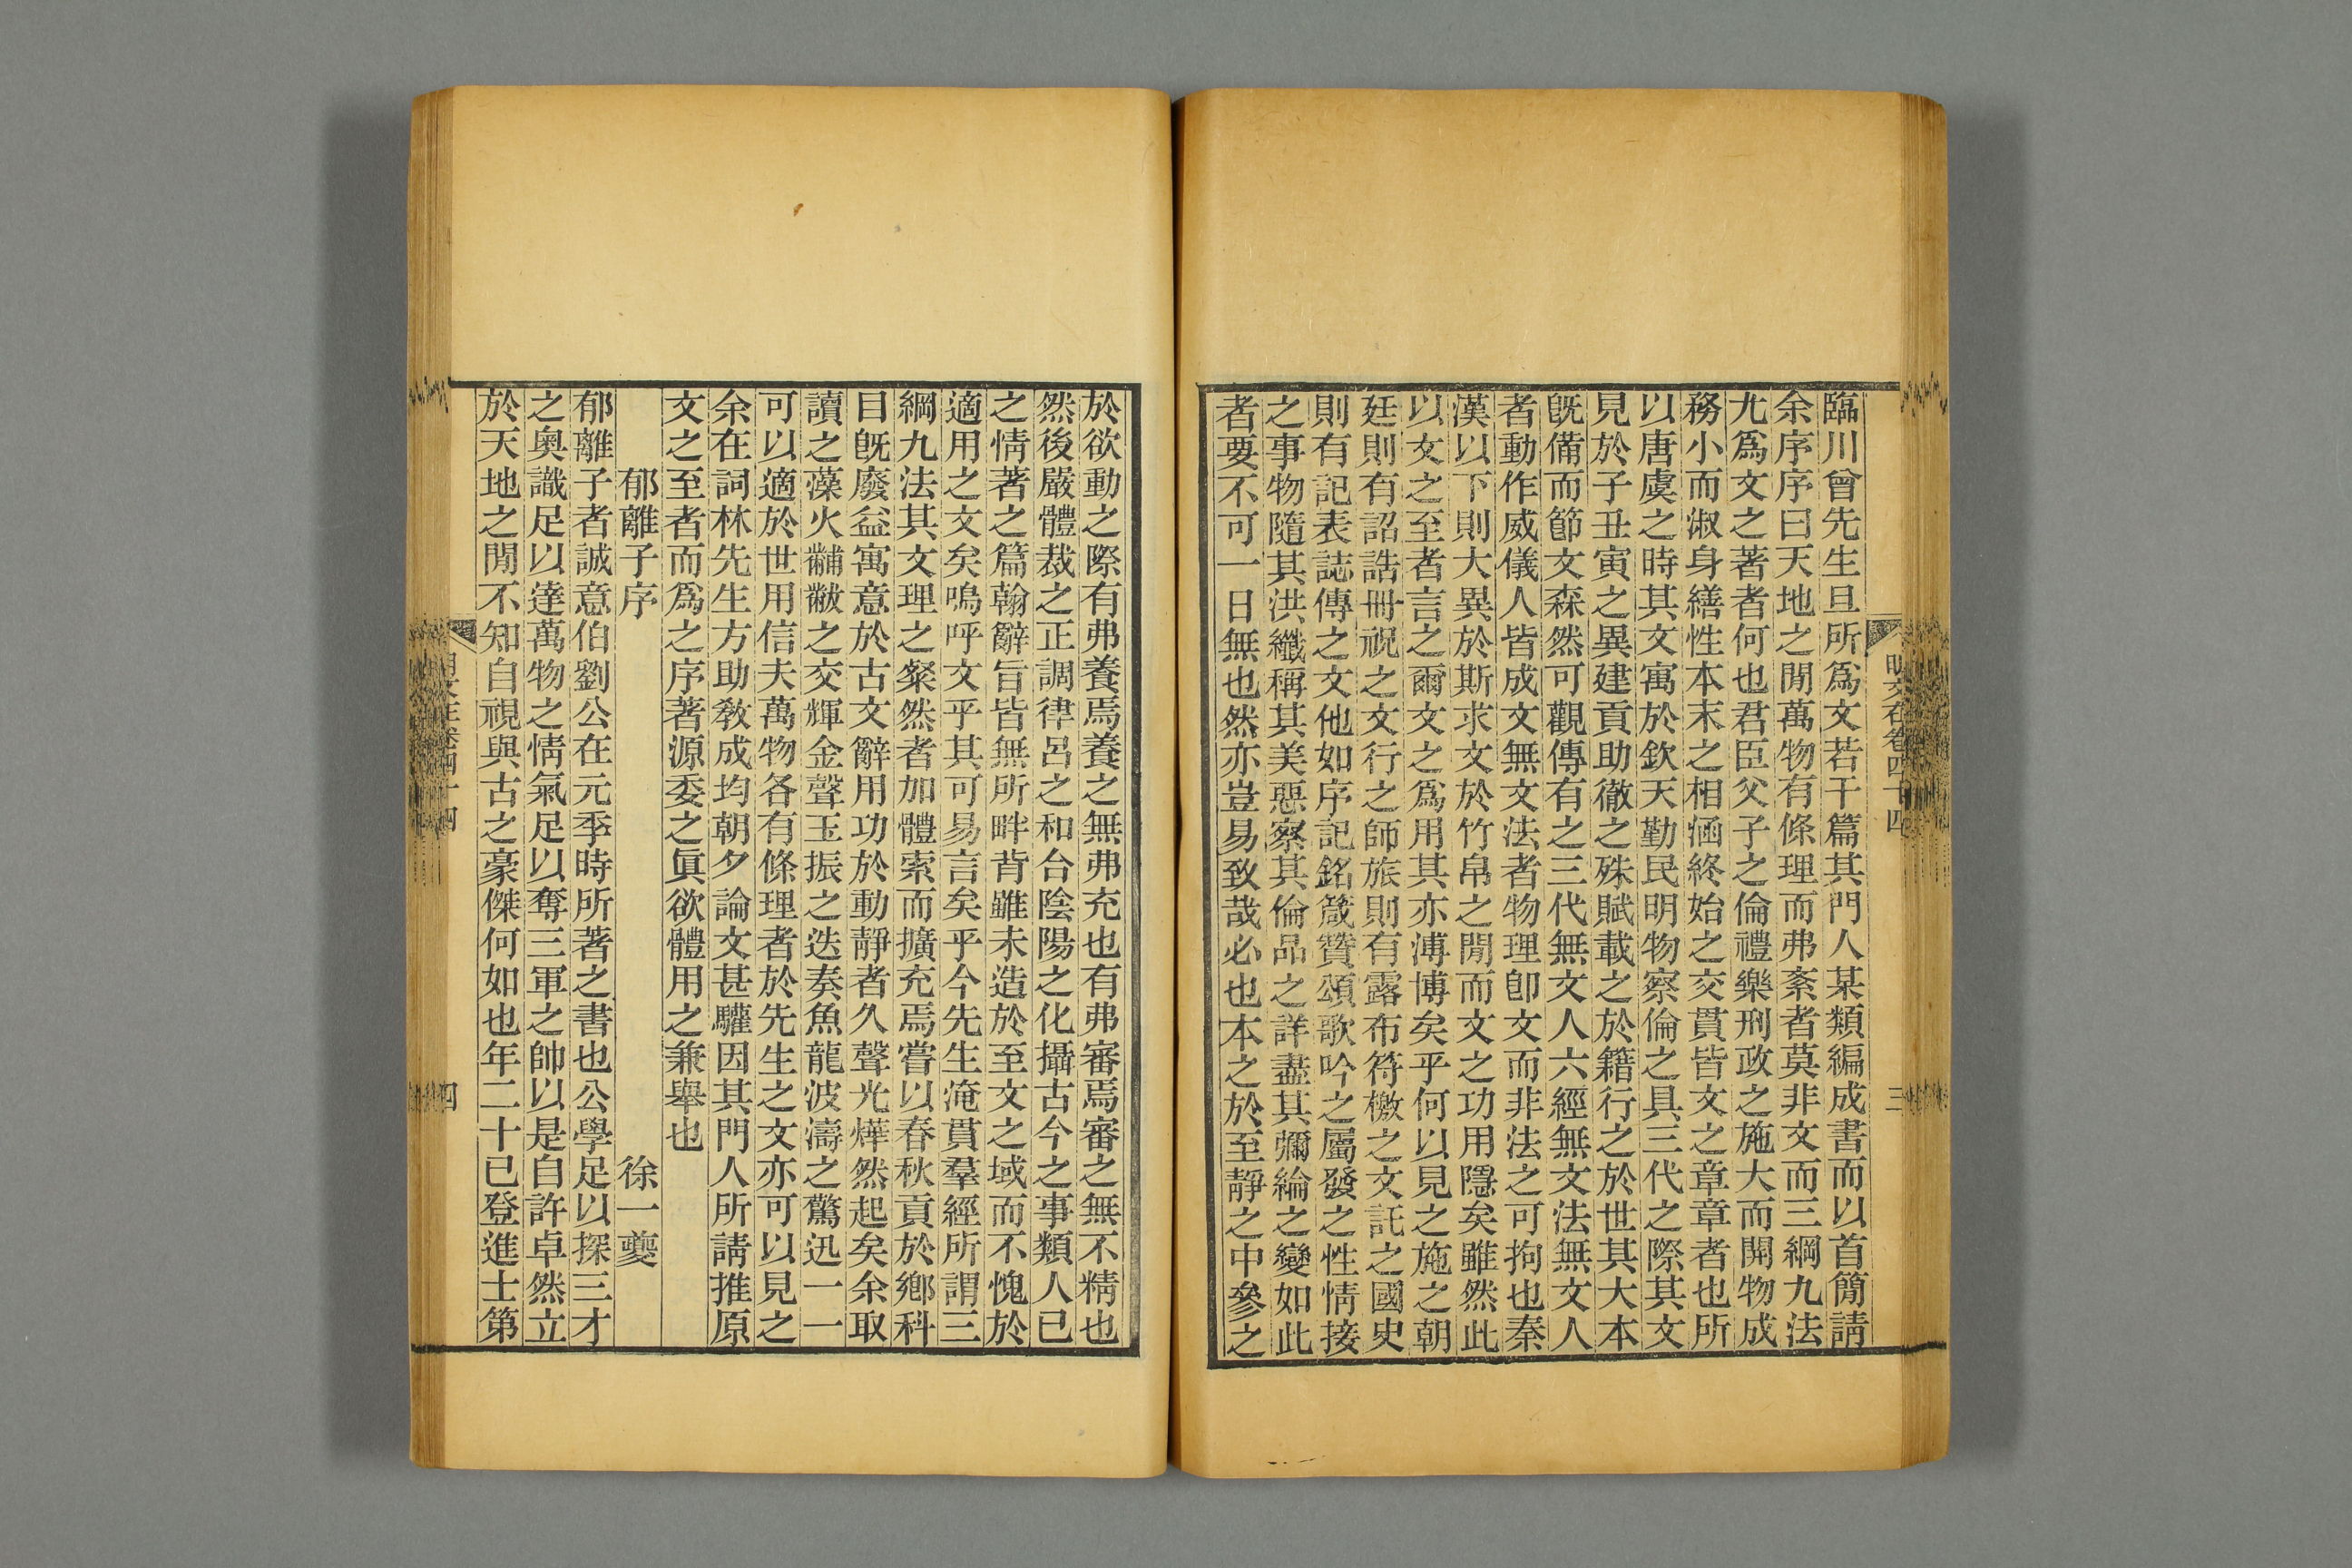 臨川曾先生旦所爲文若干篇其門人某類編成書而以首簡請
余序序曰天地之閒萬物有條理而弗紊者莫非文而三綱九法
尤爲文之著者何也君臣父子之倫禮樂刑政之施大而開物成
務小而淑身繕性本末之相涵終始之交貫皆文之章章者也所
以唐虞之時其文寓於欽天勤民明物察倫之具三代之際其文
見於子丑寅之異建貢助徹之殊賦載之於籍行之於世其大本
旣備而節文森然可觀傳有之三代無文人六經無文法無文人
者動作威儀人皆成文無文法者物理卽文而非法之可拘也秦
漢以下則大異於斯求文於竹帛之閒而文之功用隱矣雖然此
以文之至者言之爾文之爲用其亦溥博矣乎何以見之施之朝
廷則有詔誥冊祝之文行之師旅則有露布符檄之文託之國史
則有記表誌傳之文他如序記銘箴贊頌歌吟之屬發之性情接
之事物隨其洪纖稱其美惡察其倫品之詳盡其彌綸之變如此
者要不可一日無也然亦豈易致哉必也本之於至靜之中參之
明文在卷四十四
三
於欲動之際有弗養焉養之無弗充也有弗審焉審之無不精也
然後嚴體裁之正調律呂之和合陰陽之化攝古今之事類人已
之情著之篇翰辭旨皆無所畔背雖未造於至文之域而不愧於
適用之文矣嗚呼文乎其可易言矣乎今先生淹貫羣經所謂三
綱九法其文理之粲然者加體索而擴充焉嘗以春秋貢於鄕科
目旣廢益寓意於古文辭用功於動靜者久聲光燁然起矣余取
讀之藻火黼黻之交輝金聲玉振之迭奏魚龍波濤之驚迅一一
可以適於世用信夫萬物各有條理者於先生之文亦可以見之
余在詞林先生方助敎成均朝夕論文甚驩因其門人所請推原
文之至者而爲之序著源委之眞欲體用之兼舉也
郁離子序　徐一夔
郁離子者誠意伯劉公在元季時所著之書也公學足以探三才
之奧識足以達萬物之情氣足以奪三軍之帥以是自許卓然立
於天地之閒不知自視與古之豪傑何如也年二十已登進士第
四